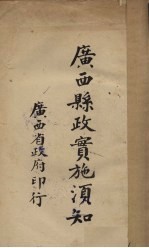 廣西縣政實施須知
廣西省政府印行